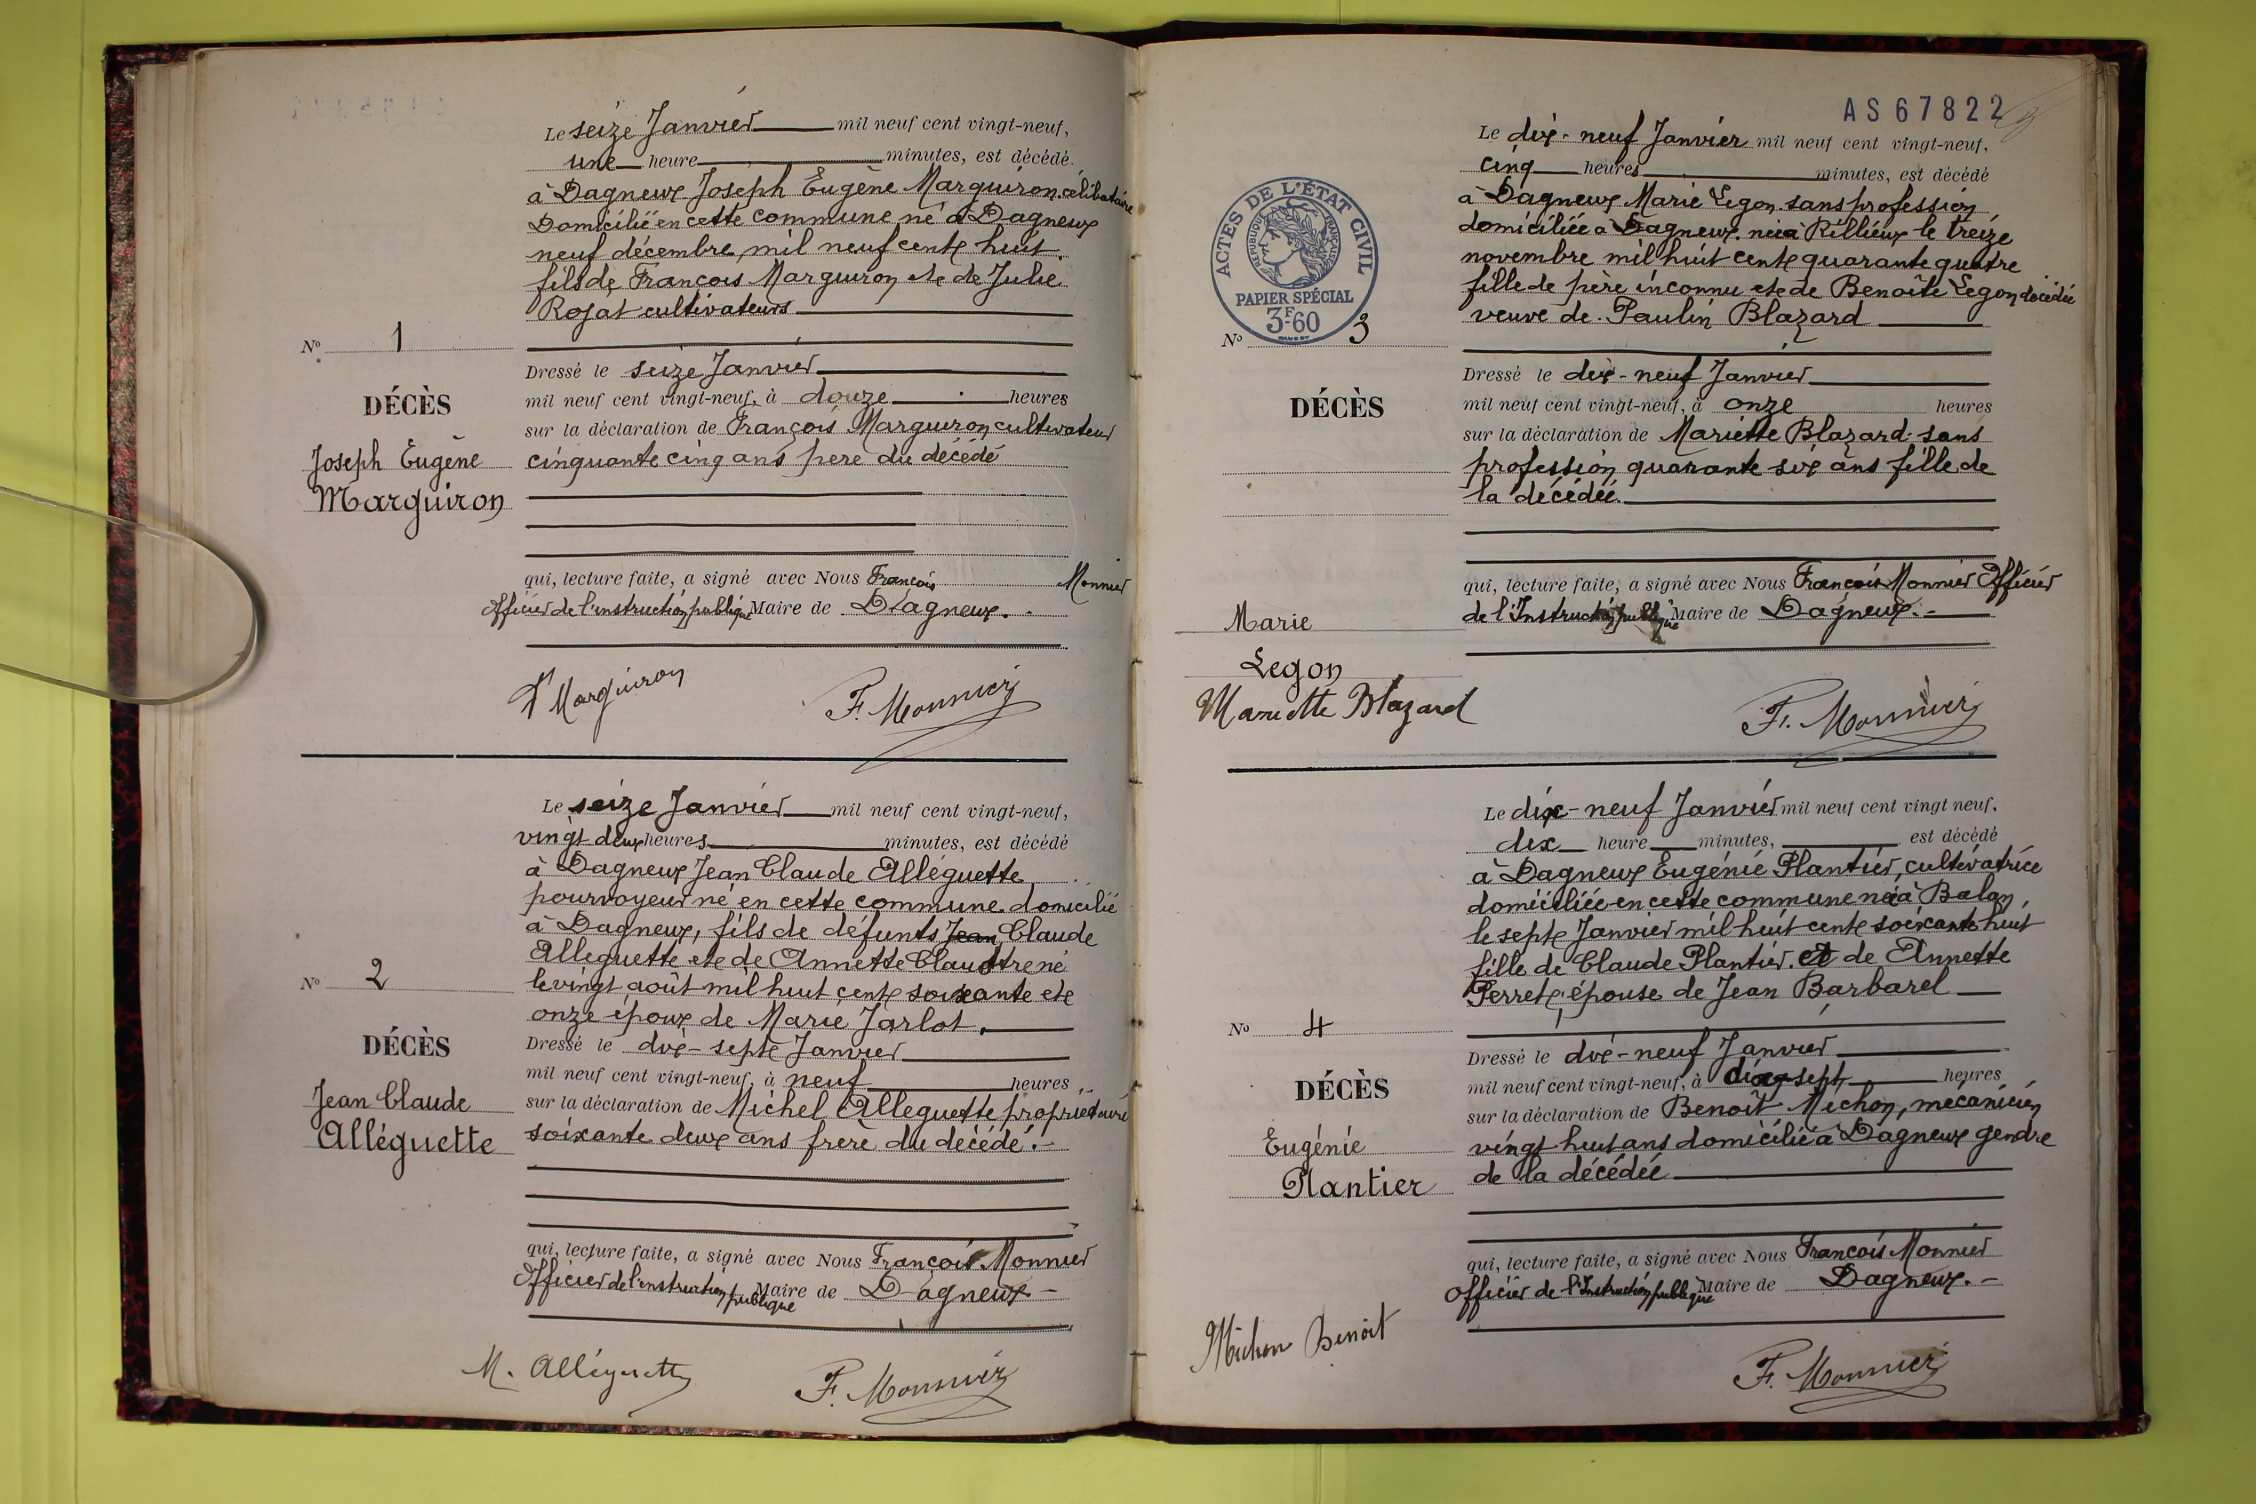 Le seize Janvier mil neuf cent vingt-neuf,
une heure minutes, est décédé
à Dagneux Joseph Eugène Marguiron célibataire
Domicilié en cette commune né à Dagneux
neuf décembre mil neuf cent huit.
fils de François Marguiron et de Julie
Rojat cultivateurs
Nº 1
DÉCÈS
Joseph Eugène
Marguiron
Dressé le seize Janvier
mil neuf cent vingt-neuf, à douze heures
sur la déclaration de François Marguiron cultivateur
cinquante cinq ans père du décédé
qui, lecture faite, a signé avec Nous François Monnier
Officier de l'instruction publique Maire de Dagneux.
F. Marguiron F. Monnier
Le seize Janvier mil neuf cent vingt-neuf,
vingt deux heures minutes, est décédé
à Dagneux Jean Claude Alléguette
pourvoyeur né en cette commune domicilié
à Dagneux, fils de défunts Jean Claude
Alleguette et de Annette Claud né
le vingt août mil huit cent soixante et
onze époux de Marie Jarlot.
Nº 2
DÉCÈS
Jean Claude
Alléguette
Dressé le dix-sept Janvier
mil neuf cent vingt-neuf, à neuf heures
sur la déclaration de Michel Alleguette propriétaire
soixante deux ans frère du décédé.
qui, lecture faite, a signé avec Nous François Monnier
Officier de l'instruction publique Maire de Dagneux
M. Alléguette F. Monnier
AS 67822
ACTES DE L'ÉTAT CIVIL
RÉPUBLIQUE FRANÇAISE
PAPIER SPÉCIAL
3F60
Le dix-neuf Janvier mil neuf cent vingt-neuf,
cinq heures minutes, est décédé
à Dagneux Marie Legon sans profession
domiciliée à Dagneux née à Rillieux le treize
novembre mil huit cent quarante quatre
fille de père inconnu et de Benoîte Legon décédée
veuve de Paulin Blazard
Nº 3
DÉCÈS
Marie
Legon
Dressé le dix-neuf Janvier
mil neuf cent vingt-neuf, à onze heures
sur la déclaration de Mariette Blazard sans
profession quarante six ans fille de
la décédée.
qui, lecture faite, a signé avec Nous François Monnier Officier
de l'Instruction publique Maire de Dagneux.
Mariette Blazard F. Monnier
Le dix-neuf Janvier mil neuf cent vingt neuf,
dix heure minutes, est décédé
à Dagneux Eugénie Plantier, cultivatrice
domiciliée en cette commune née à Balan
le sept Janvier mil huit cent soixante huit
fille de Claude Plantier et de Annette
Perret épouse de Jean Barbarel
Nº 4
DÉCÈS
Eugénie
Plantier
Dressé le dix-neuf Janvier
mil neuf cent vingt-neuf, à dix-sept heures
sur la déclaration de Benoît Michon, mécanicien
vingt huit ans domicilié à Dagneux gendre
de la décédée
qui, lecture faite, a signé avec Nous François Monnier
Officier de l'Instruction publique Maire de Dagneux.
Michon Benoît F. Monnier